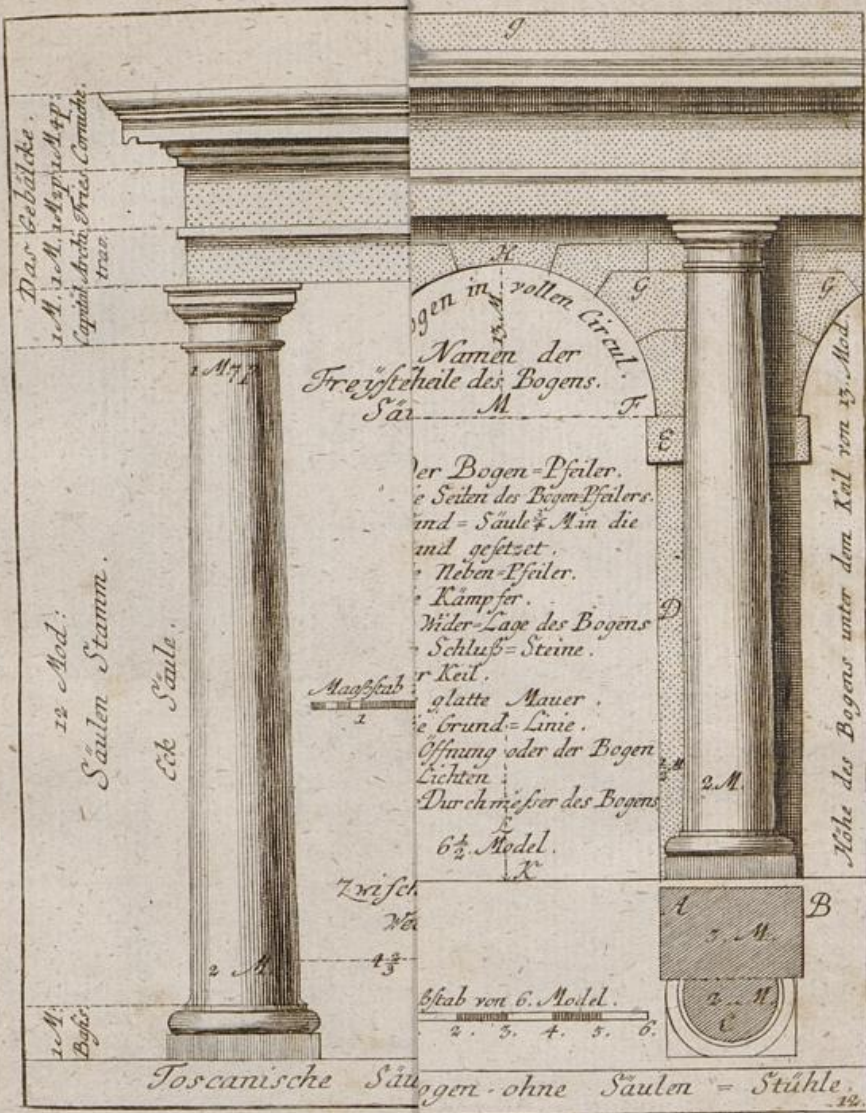 Das Gebälcke.
1 M. 1 M. 1 M 2 p 1 M. 4 p.
Capitäl Archi Fries. Corniche.
trav.
1 M. 7 p
12 Mod:
Säulen Stamm.
Eck Säule.
2 M.
1 M:
Basis.
Freyste
Säu
Maaßstab
1
Zwisch
We
4 2/3
Toscanische Säu
g
H
ogen in vollen Circul.
13. M.
G
G
Namen der
heile des Bogens.
M
F
E
Der Bogen=Pfeiler.
e Seiten des Bogen-Pfeilers.
and=Säule 3/4 M in die
and gesetzet.
e Neben=Pfeiler.
e Kämpfer.
Wider=Lage des Bogens
Schluß=Steine.
r Keil.
glatte Mauer.
e Grund=Linie.
Öffnung oder der Bogen
Lichten
Durchmeßer des Bogens
L
6 1/2. Model.
K
D
1/2 M
2. M.
Höhe des Bogens unter dem Keil von 13. Mod.
A
B
3. M.
2. M.
C
ßstab von 6. Model.
2. 3. 4. 5. 6.
ogen. ohne Säulen=Stühle.
12.